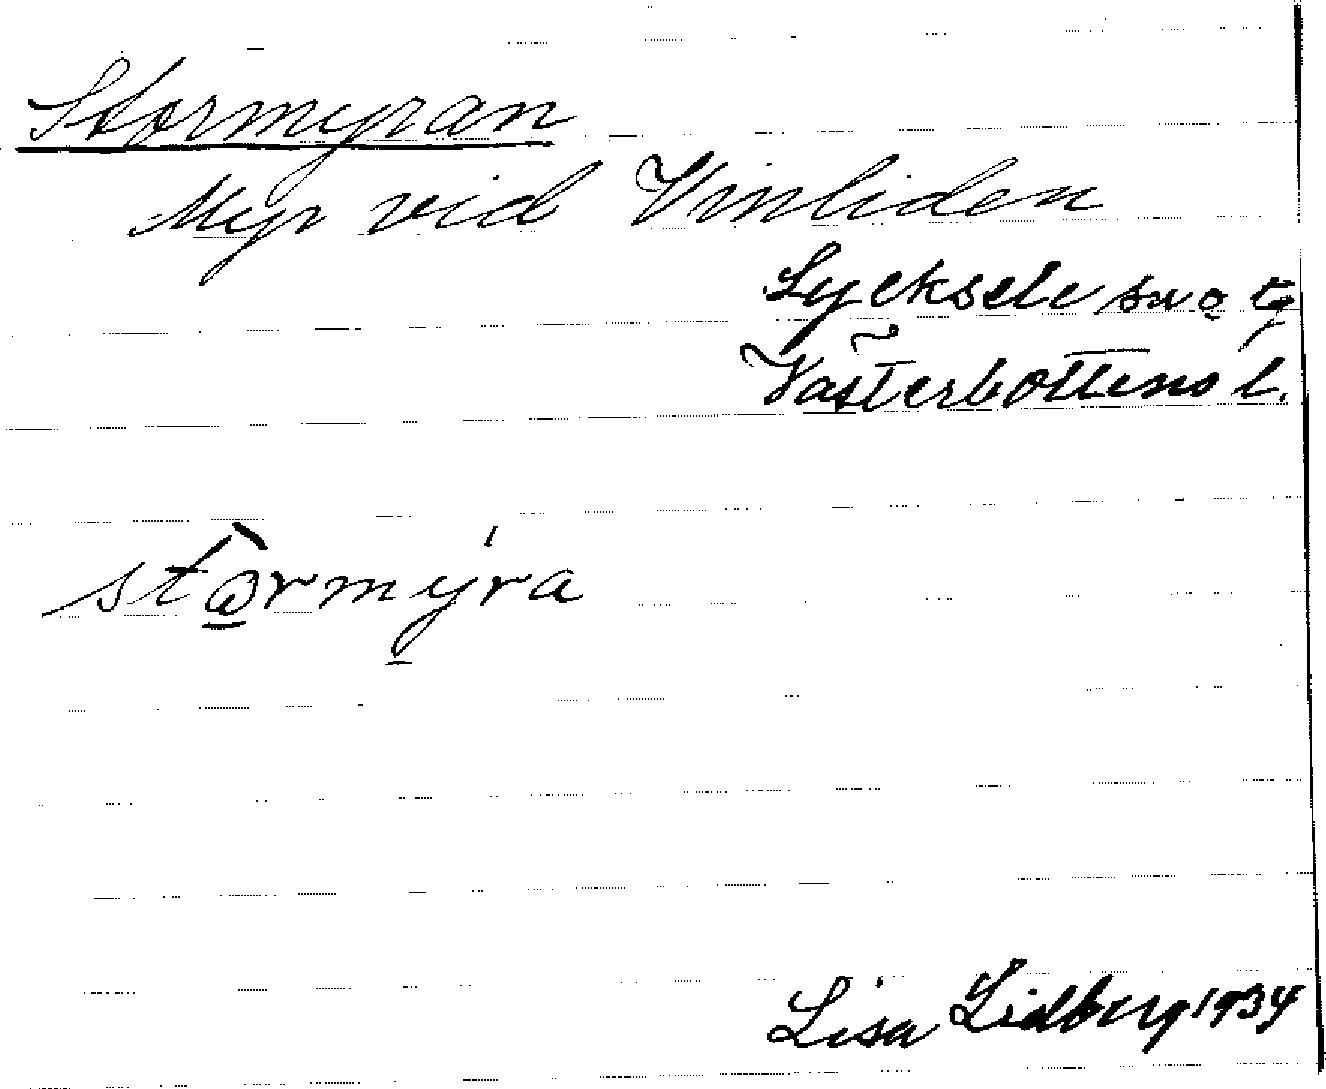 Stormyran
Myr vid Vinliden
Lycksele sn o tg
Västerbottens l.
stormyra
Lisa Lidberg 1934